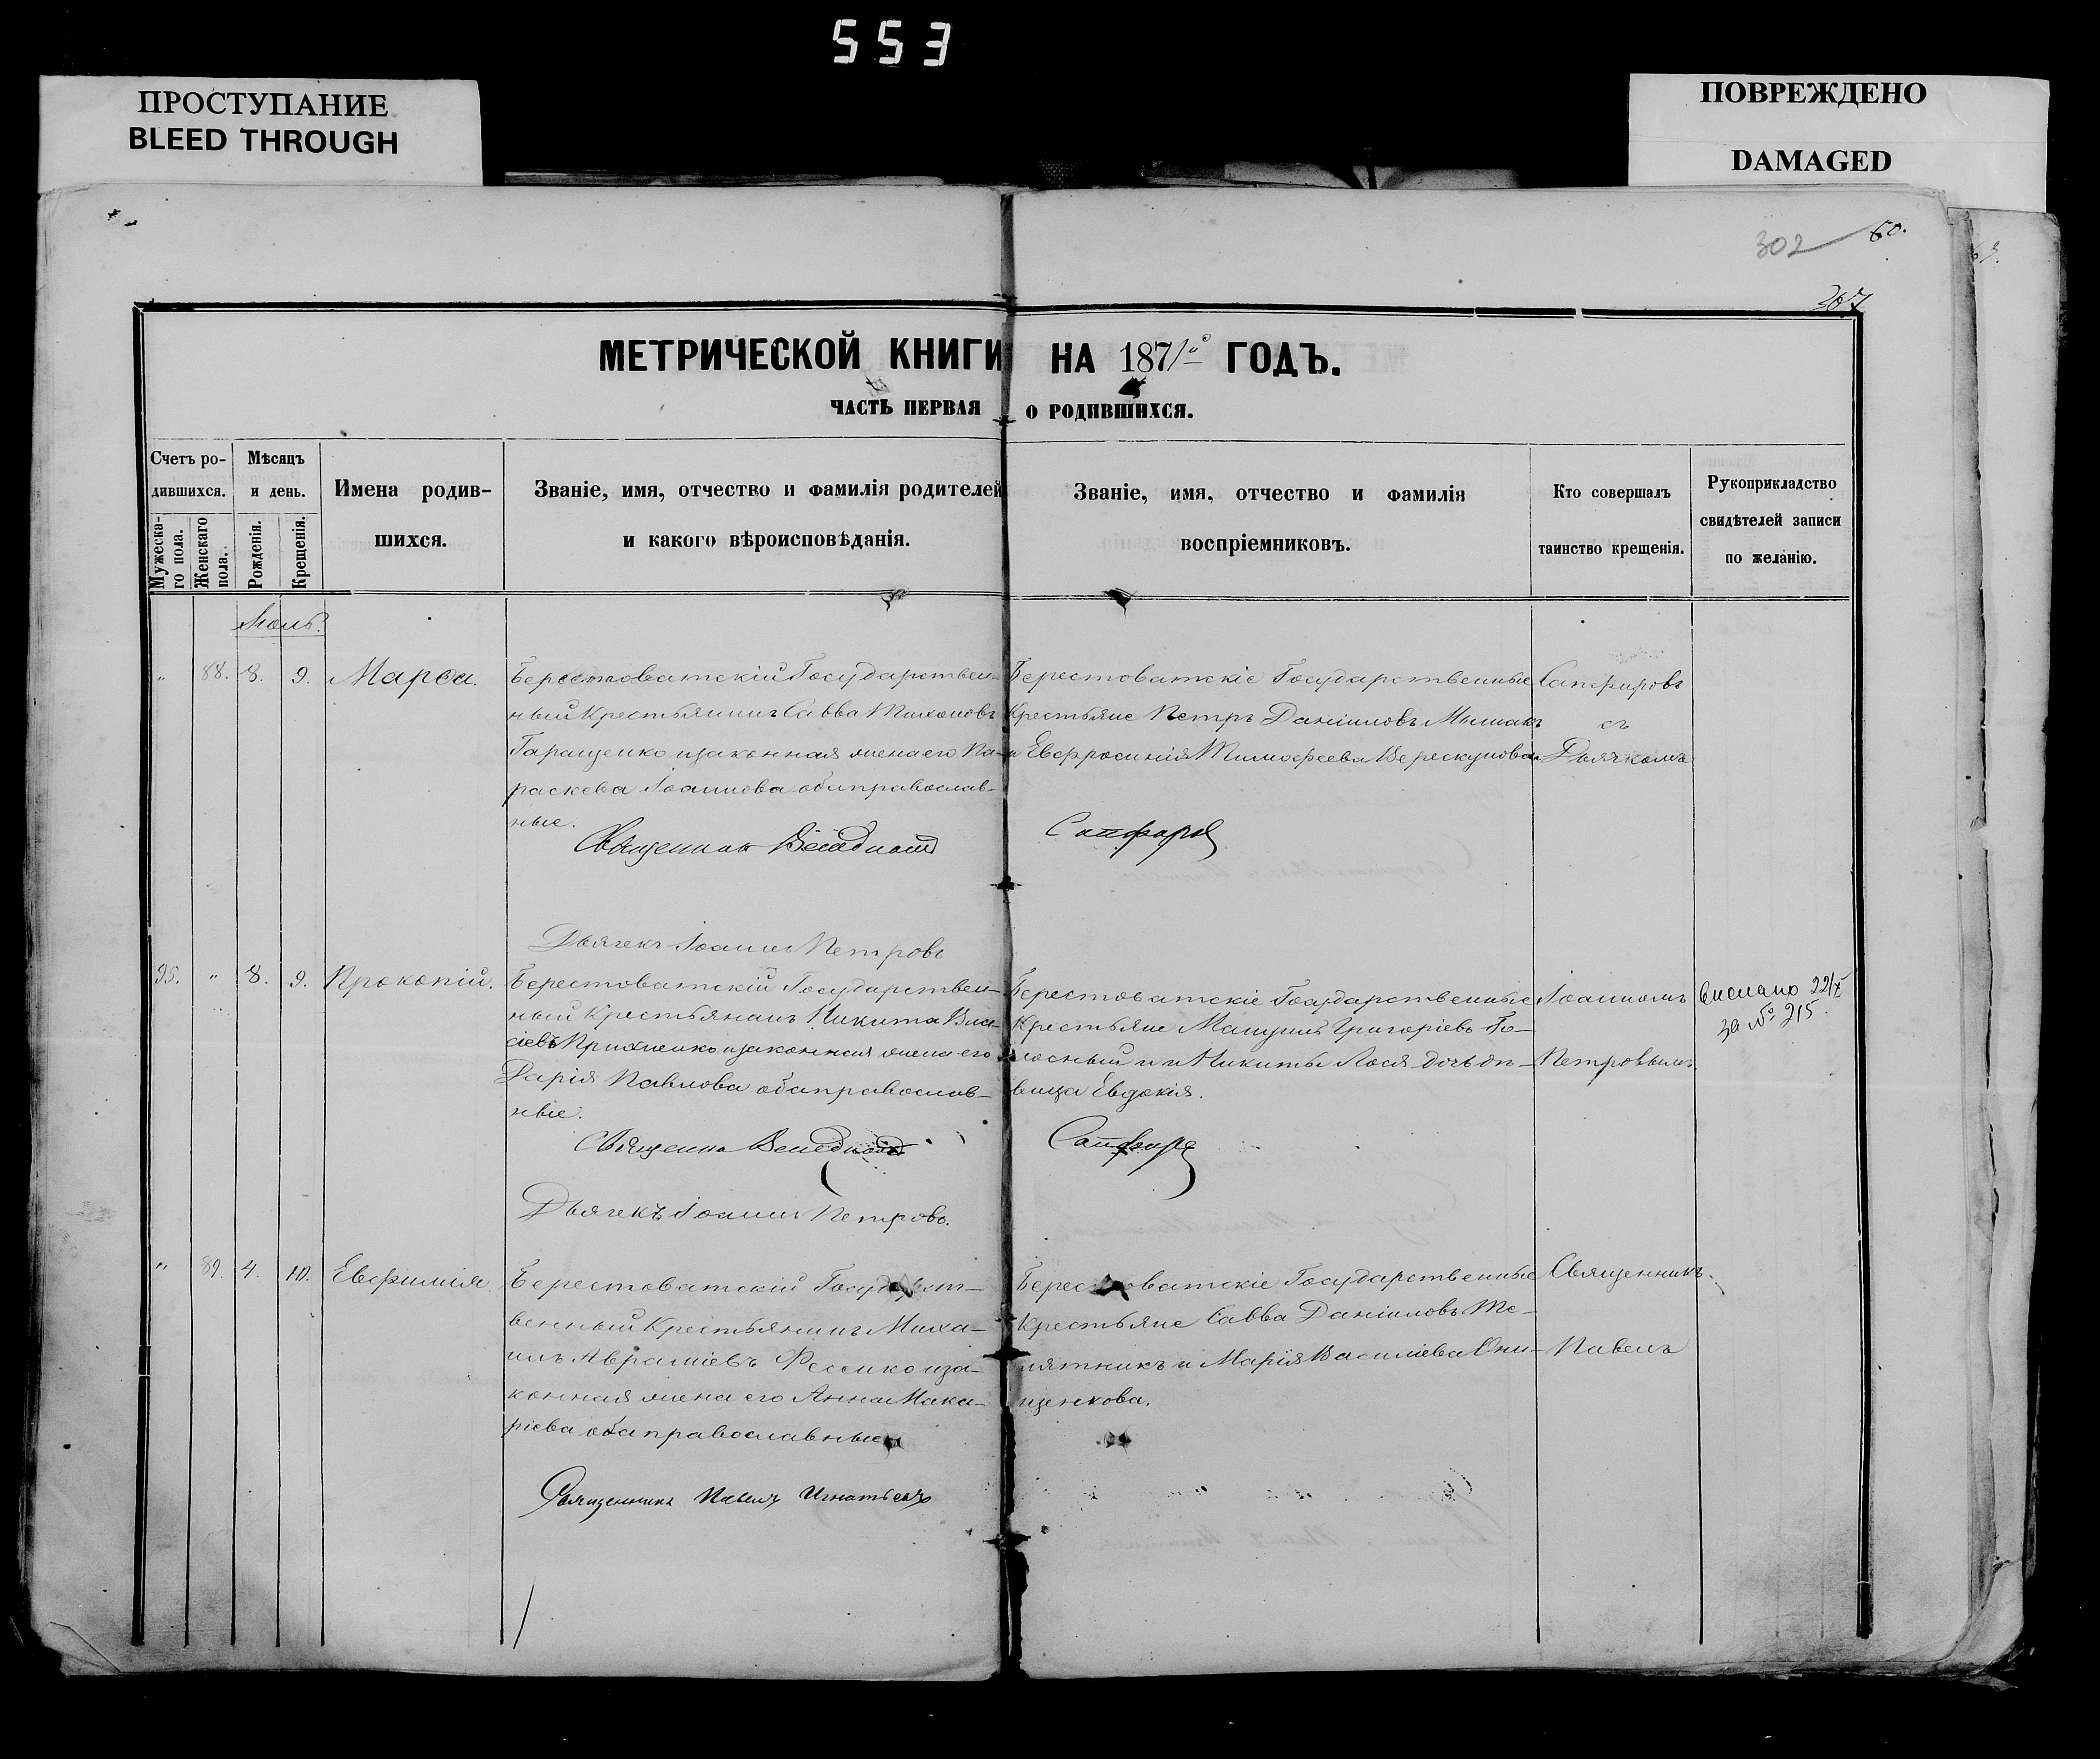 553
ПРОСТУПАНИЕ
BLEED THROUGH
ПОВРЕЖДЕНО
DAMAGED
302
60.
63.
267
МЕТРИЧЕСКОЙ КНИГИ НА 1871го ГОДЪ.
ЧАСТЬ ПЕРВАЯ О РОДИВШИХСЯ.
Счетъ ро-
дившихся.
Мужеска-
го пола.
Женскаго
пола.
Мѣсяцъ
и день.
Рожденія.
Крещенія.
Имена родив-
шихся.
Званіе, имя, отчество и фамилія родителей
и какого вѣроисповѣданія.
Званіе, имя, отчество и фамилія
воспріемниковъ.
Кто совершалъ
таинство крещенія.
Рукоприкладство
свидѣтелей записи
по желанію.
„ 88. 8. 9. Марѳа.
Берестоватскій Государствен-
ный Крестьянинъ Савва Тихоновъ
Таращенко и законная жена его Па-
раскева Іоаннова оба православ-
ные.
Священникъ
Дьячекъ Іоаннъ Петровъ
Берестоватскіе Государственные
Крестьяне Петръ Даніиловъ
и Евфросинія Тимофеева Верескунова
Сапфировъ
съ
Дьячкомъ
95. „ 8. 9. Прокопій.
Берестоватскій Государствен-
ный Крестьянинъ Никита Вла-
сіевъ и законная жена его
Дарія Павлова оба православ-
ные.
Дьячекъ Іоаннъ Петровъ.
Берестоватскіе Государственные
Крестьяне Григоріевъ Го-
лосный и Никиты Лося дочь дѣ-
вица Евдокія.
Іоанномъ
Петровымъ.
Выслано 22/X
за № 215.
„ 89. 4. 10. Евфимія
Берестоватскій Государст-
венный Крестьянинъ Миха-
илъ Авраміевъ и за-
конная жена его Анна Мака-
ріева оба православные
Священникъ Павелъ Игнатьевъ
Берестоватскіе Государственные
Крестьяне Савва Даніиловъ Те-
лятникъ и Марія Василіева Они-
щенкова.
Священникъ
Павелъ